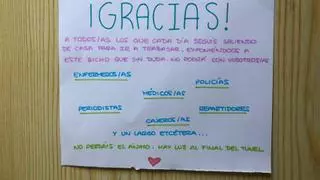 ¡GRACIAS!
A TODOS/AS LOS QUE CADA DÍA SEGUÍS SALIENDO
DE CASA PARA IR A TRABAJAR, EXPONIÉNDOOS A
ESTE BICHO QUE SIN DUDA NO PODRÁ CON VOSOTROS/AS
ENFERMEROS/AS
POLICÍAS
MÉDICOS/AS
PERIODISTAS
REPARTIDORES
CAJEROS/AS
Y UN LARGO ETCÉTERA...
NO PERDÁIS EL ÁNIMO. HAY LUZ AL FINAL DEL TUNEL.